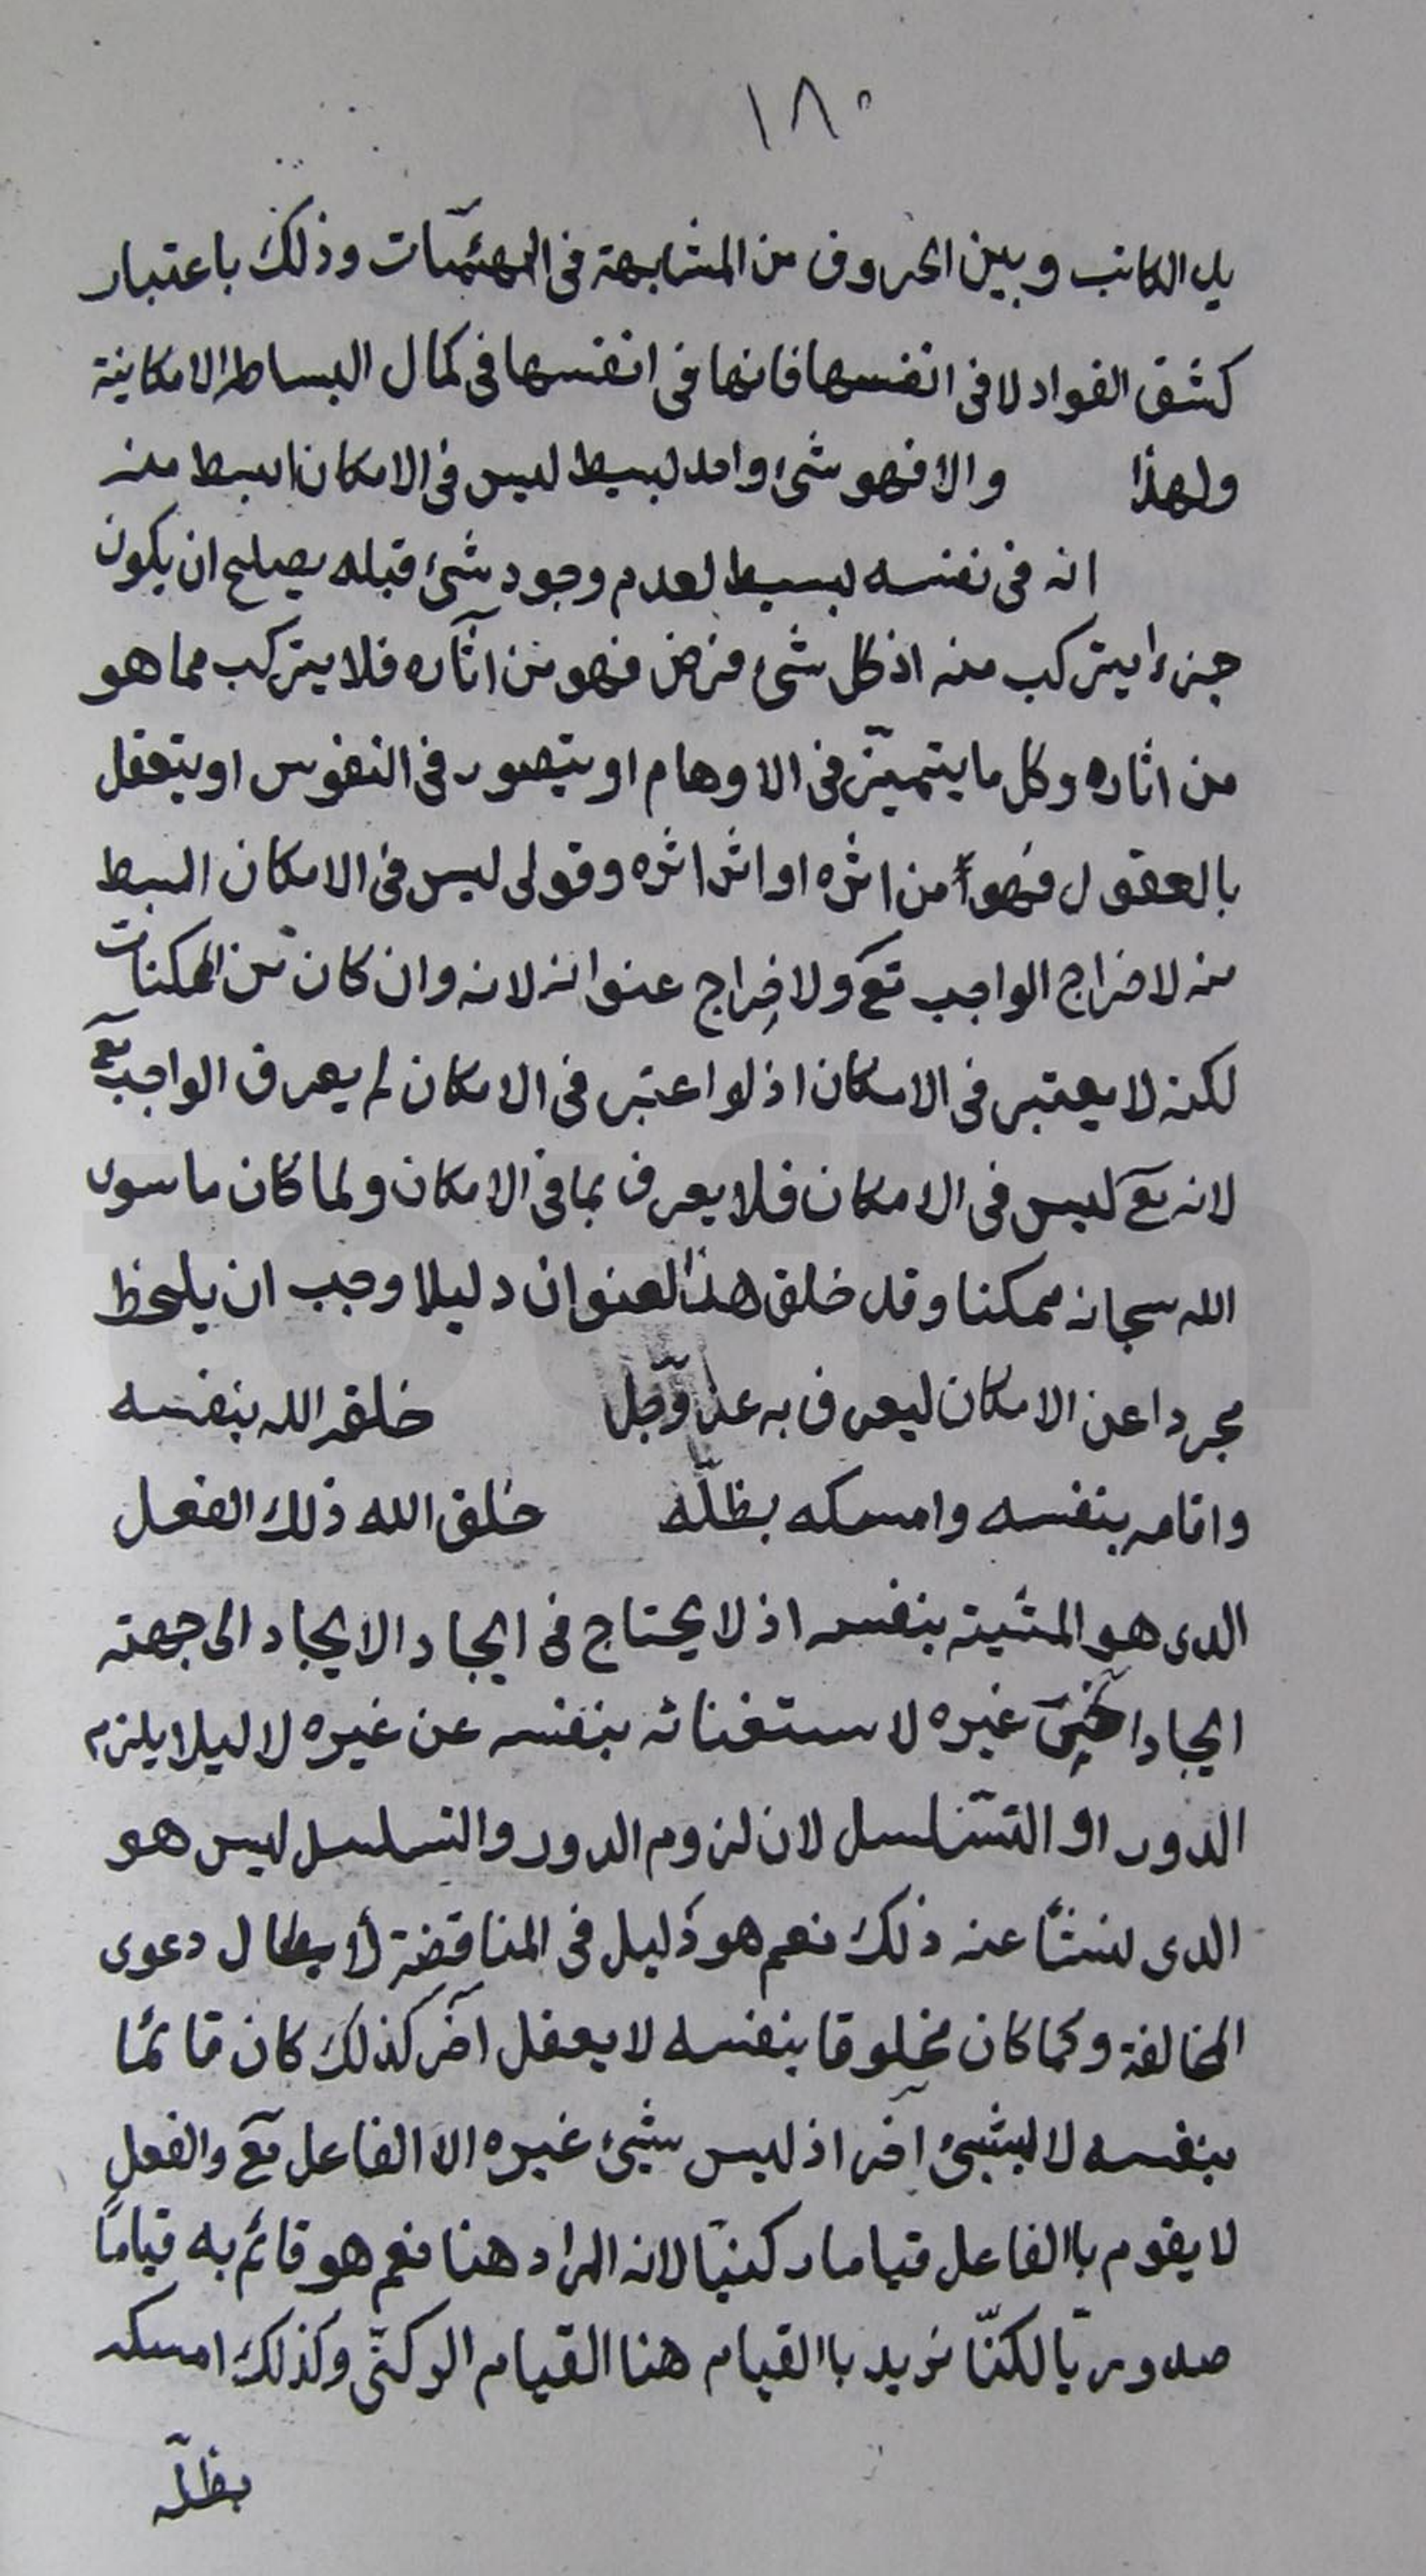 ١٨٠
يد الكاتب وبين الحروف من المشابهة فى الهيئات وذلك باعتبار
كشف الفواد لا فى انفسها فانها فى انفسها فى كمال البساطة الامكانية
ولهذا والا فهو شئ واحد بسيط ليس فى الامكان ابسط منه
انه فى نفسه بسيط لعدم وجود شئ قبله يصلح ان يكون
جزءا يتركب منه اذ كل شئ فرض فهو من آثاره فلا يتركب مما هو
من اثاره وكل ما يتميّز فى الاوهام او يتصور فى النفوس او يتعقل
بالعقول فهو من اثره او اثر اثره وقولى ليس فى الامكان ابسط
منه لاخراج الواجب تع ولاخراج عنوانه لانه وان كان من الممكنات
لكنه لا يعتبر فى الامكان اذ لو اعتبر فى الامكان لم يعرف الواجب تع
لانه تع ليس فى الامكان فلا يعرف بما فى الامكان ولما كان ما سوى
الله سبحانه ممكنا وقد خلق هذا العنوان دليلا وجب ان يلحظ
مجردا عن الامكان ليعرف به عز وجل خلقه الله بنفسه
واقامه بنفسه وامسكه بظلّه خلق الله ذلك الفعل
الذى هو المشية بنفسه اذ لا يحتاج فى ايجاد الايجاد الى جهته
ايجاد غيره لاستغنائه بنفسه عن غيره لا ليلا يلزم
الدور او التسلسل لان لزوم الدور والتسلسل ليس هو
الذى نشأ عنه ذلك نعم هو دليل فى المناقضة لابطال دعوى
المخالفة وكما كان مخلوقا بنفسه لا بفعل آخر كذلك كان قائما
بنفسه لا بشئ آخر اذ ليس شئ غيره الا الفاعل تع والفعل
لا يقوم باالفاعل قياما ركنيّا لانه المراد هنا نعم هو قائم به قياماً
صدوريّا لكنّا نريد باالقيام هنا القيام الركنىّ وكذلك امسكه
بظلّه